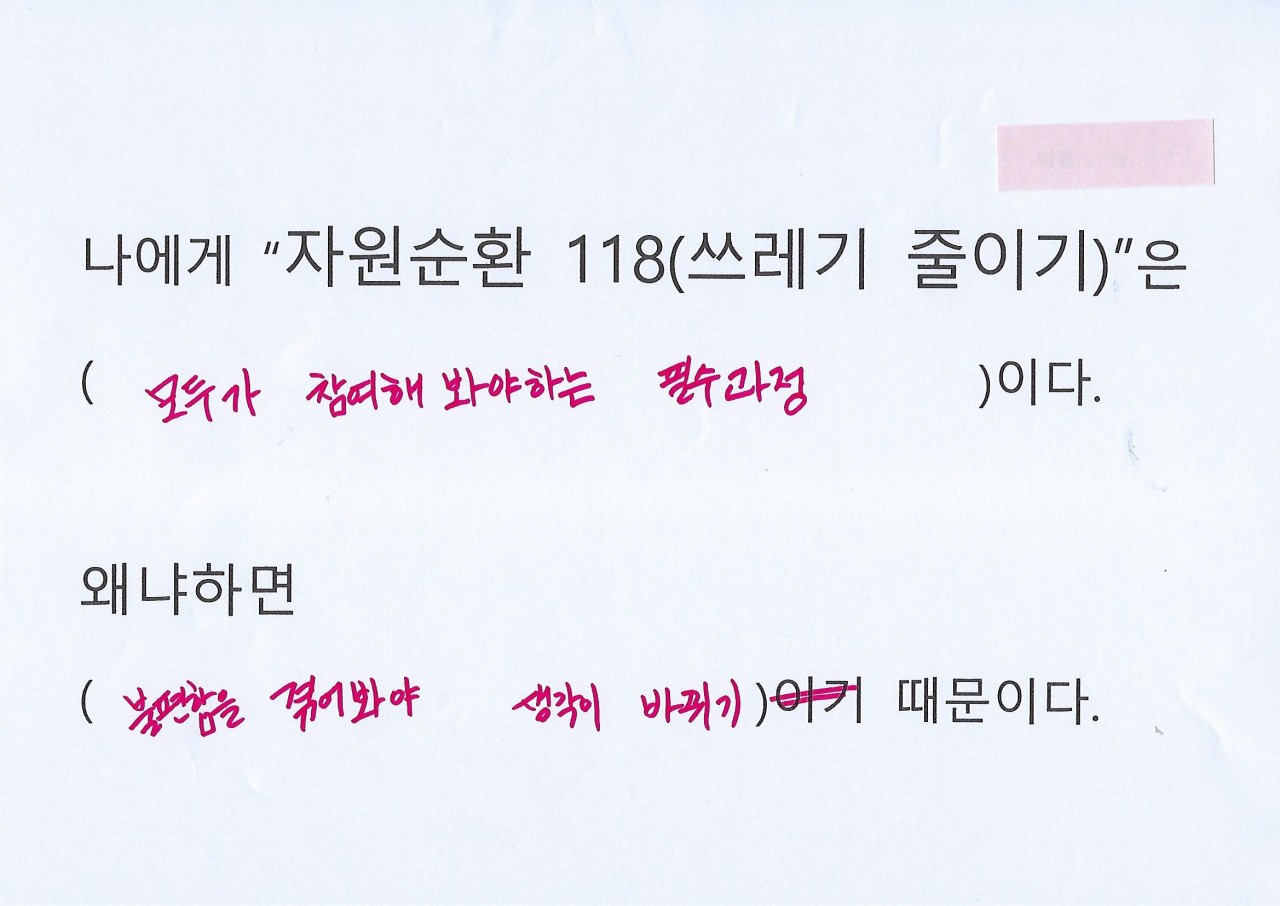 나에게 “자원순환 118(쓰레기 줄이기)”은
( 모두가 참여해 봐야하는 필수과정 )이다.
왜냐하면
( 불편함을 겪어봐야 생각이 바뀌기 )이기 때문이다.